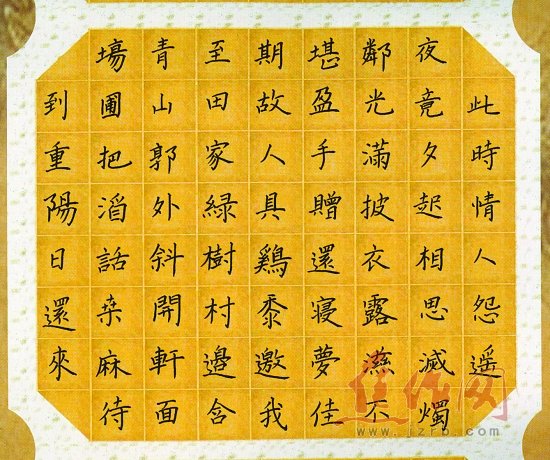 此時情人怨遥
夜竟夕起相思滅燭
鄰光滿披衣露滋不
堪盈手贈還寝夢佳
期故人具鷄黍邀我
至田家緑樹村邊含
青山郭外斜開軒面
塲圃把滔話桒麻待
到重陽日還來
焦作网
www.jzrb.com